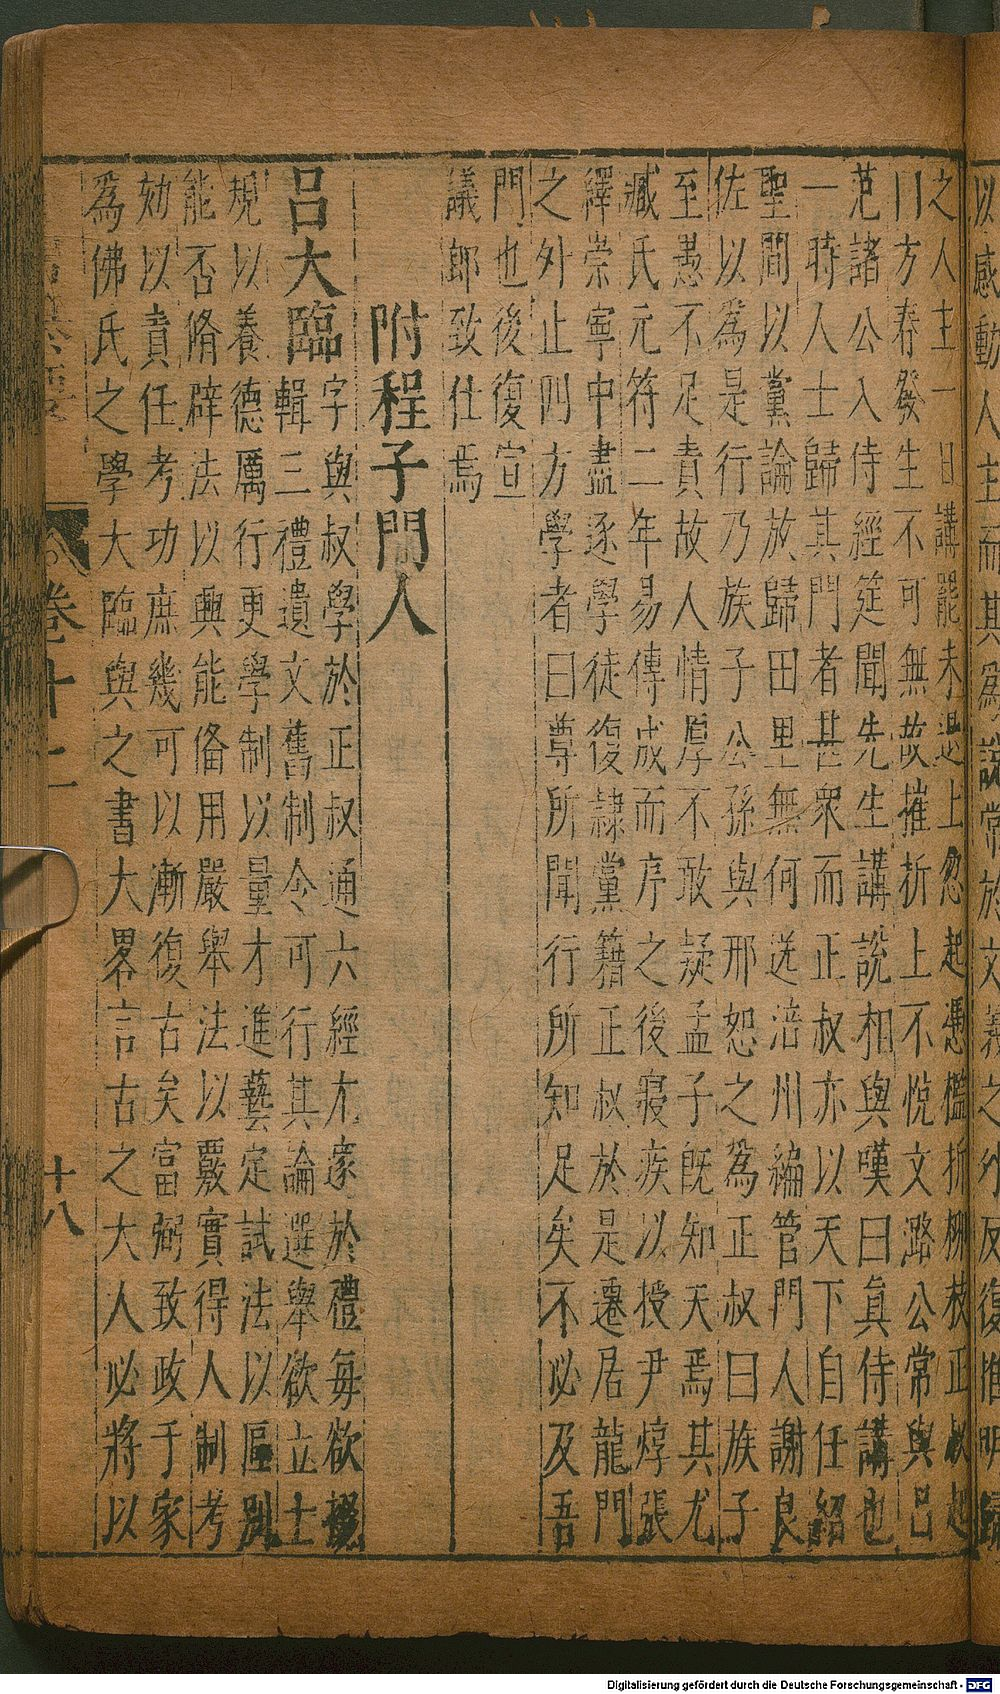 以感動人主而其爲說常於文義之外反復推明歸
之人主一日講罷未退上忽起憑檻折柳枝正叔起
曰方春發生不可無故摧折上不悅文潞公常與呂
范諸公入侍經筵聞先生講說相與嘆曰眞侍講也
一時人士歸其門者甚衆而正叔亦以天下自任紹
聖間以黨論放歸田里無何送涪州編管門人謝良
佐以爲是行乃族子公孫與邢恕之爲正叔曰族子
至愚不足責故人情厚不敢疑孟子旣知天焉其尤
臧氏元符二年易傳成而序之後寢疾以授尹焞張
繹崇寧中盡逐學徒復隷黨籍正叔於是遷居龍門
之外止四方學者曰尊所聞行所知足矣不必及吾
門也後復宣
議郎致仕焉
附程子門人
呂大臨字與叔學於正叔通六經尤邃於禮每欲掇
輯三禮遺文舊制令可行其論選舉欲立士
規以養德厲行更學制以量才進藝定試法以區別
能否脩辟法以興能備用嚴舉法以覈實得人制考
効以責任考功庶幾可以漸復古矣富弼致政于家
爲佛氏之學大臨與之書大畧言古之大人必將以
卷十二
十八
Digitalisierung gefördert durch die Deutsche Forschungsgemeinschaft - DFG